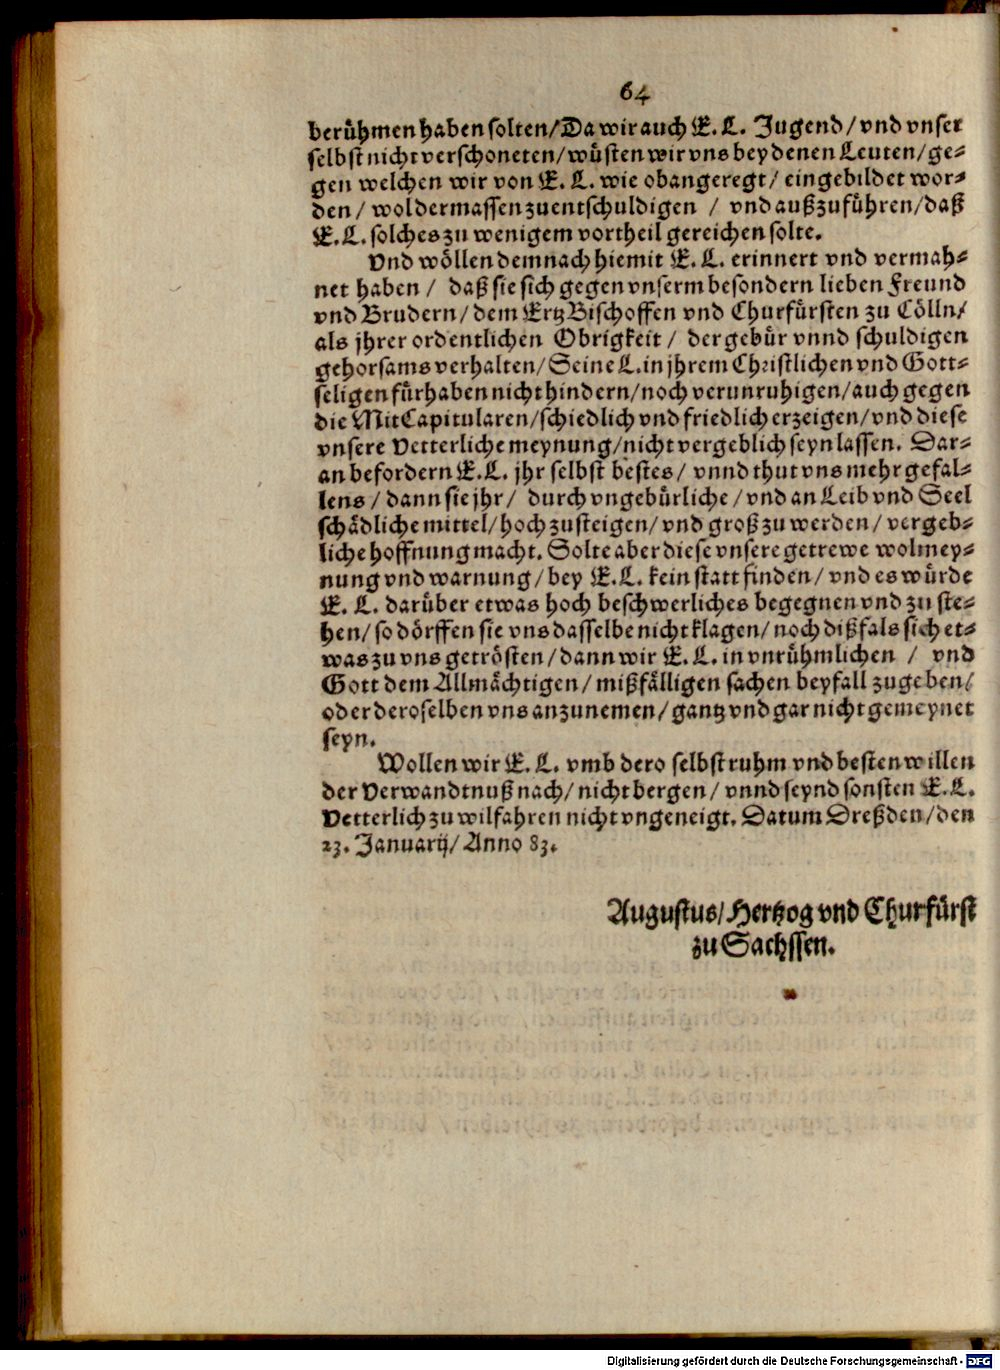 64
berühmen haben solten/Da wir auch E. L. Jugend/vnd vnser
selbst nicht verschoneten/wüsten wir vns bey denen Leuten/ge-
gen welchen wir von E. L. wie obangeregt/ eingebildet wor-
den/ wol dermassen zu entschuldigen / vnd außzuführen/daß
E. L. solches zu wenigem vortheil gereichen solte.
Vnd wöllen demnach hiemit E. L. erinnert vnd vermah-
net haben / daß sie sich gegen vnserm besondern lieben Freund
vnd Brudern/dem ErtzBischoffen vnd Churfürsten zu Cölln/
als jhrer ordentlichen Obrigkeit / der gebür vnnd schuldigen
gehorsams verhalten/Seine L. in jhrem Christlichen vnd Gott-
seligen fürhaben nicht hindern/noch verunruhigen/auch gegen
die MitCapitularen/schiedlich vnd friedlich erzeigen/vnd diese
vnsere Vetterliche meynung/nicht vergeblich seyn lassen. Dar-
an befordern E. L. jhr selbst bestes/ vnnd thut vns mehr gefal-
lens/dann sie jhr/ durch vngebürliche/vnd an Leib vnd Seel
schädliche mittel/hoch zusteigen/vnd groß zu werden/vergeb-
liche hoffnung macht. Solte aber diese vnsere getrewe wolmey-
nung vnd warnung/bey E. L. kein statt finden/vnd es würde
E. L. darüber etwas hoch beschwerliches begegnen vnd zu ste-
hen/so dörffen sie vns dasselbe nicht klagen/noch dißfals sich et-
was zu vns getrösten/dann wir E. L. in vnrühmlichen / vnd
Gott dem Allmächtigen/mißfälligen sachen beyfall zugeben/
oder deroselben vns anzunemen/gantz vnd gar nicht gemeynet
seyn.
Wollen wir E. L. vmb dero selbst ruhm vnd besten willen
der Verwandtnuß nach/nicht bergen/vnnd seynd sonsten E. L.
Vetterlich zu wilfahren nicht vngeneigt. Datum Dreßden/den
23. Januarij/ Anno 83.
Augustus/Hertzog vnd Churfürst
zu Sachssen.
Digitalisierung gefördert durch die Deutsche Forschungsgemeinschaft - DFG